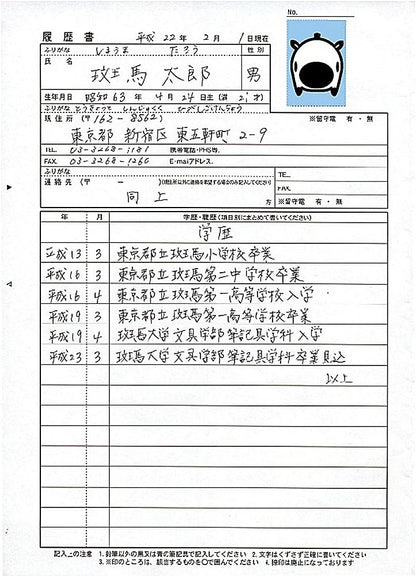 No.
履歴書 平成 22年 2月 1日現在
ふりがな しまうま たろう 性別
氏名 斑馬 太郎 男
生年月日 昭和 63年 4月 24日生 (満 21才)
ふりがな とうきょうと しんじゅくく ひがしごけんちょう
現住所 (〒162-8562) ※留守電 有・無
東京都 新宿区 東五軒町 2-9
TEL. 03-3268-1181 携帯電話・PHS等.
FAX. 03-3268-1260 E-mailアドレス.
ふりがな TEL.
連絡先 (〒 - ) (現住所以外に連絡を希望する場合のみ記入してください) FAX.
同上 方 ※留守電 有・無
年 月 学歴・職歴(項目別にまとめて書いてください)
学歴
平成13 3 東京都立斑馬小学校卒業
平成16 3 東京都立斑馬第二中学校卒業
平成16 4 東京都立斑馬第一高等学校入学
平成19 3 東京都立斑馬第一高等学校卒業
平成19 4 斑馬大学文具学部筆記具学科入学
平成23 3 斑馬大学文具学部筆記具学科卒業見込
以上
記入上の注意 1.鉛筆以外の黒又は青の筆記具で記入してください 2.文字はくずさず正確に書いてください
3.※印のところは、該当するものを○で囲んでください 4.捺印は廃止になっております